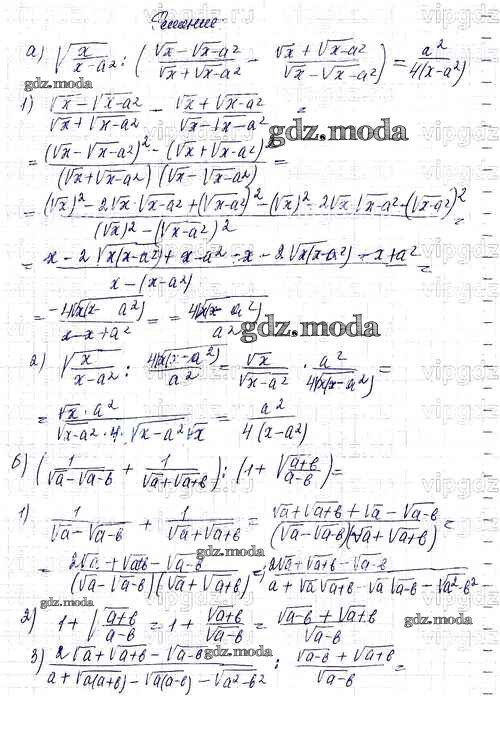 Решение
а) √(x/(x-a²)) : ((√x-√x-a²)/(√x+√x-a²) - (√x+√x-a²)/(√x-√x-a²)) = a²/4(x-a²)
gdz.moda
1) (√x-√x-a²)/(√x+√x-a²) - (√x+√x-a²)/(√x-√x-a²) =
gdz.moda
= ((√x-√x-a²)² - (√x+√x-a²)²)/((√x+√x-a²)(√x-√x-a²)) =
= ((√x)² - 2√x·√x-a² + (√x-a²)² - (√x)² - 2√x√x-a² - (√x-a²)²)/((√x)² - (√x-a²)²) =
= (x-2√x(x-a²) + x-a² - x - 2√x(x-a²) - x+a²)/(x-(x-a²)) =
= -4√x(x-a²)/(x-x+a²) = -4√x(x-a²)/a²
gdz.moda
2) √(x/(x-a²)) : 4√x(x-a²)/a² = √x/√x-a² · a²/4√x(x-a²) =
= √x·a²/(√x-a²·4·√x-a²·√x) = a²/4(x-a²)
б) (1/(√a-√a-b) + 1/(√a+√a+b)) : (1+√(a+b)/(a-b)) =
gdz.moda
1) 1/(√a-√a-b) + 1/(√a+√a+b) = (√a+√a+b+√a-√a-b)/((√a-√a-b)(√a+√a+b)) =
= (2√a+√a+b-√a-b)/((√a-√a-b)(√a+√a+b)) = (2√a+√a+b-√a-b)/(a+√a√a+b-√a√a-b-√a²-b²)
gdz.moda
gdz.moda
2) 1+√(a+b)/(a-b) = 1+√a+b/√a-b = (√a-b+√a+b)/√a-b
gdz.moda
3) (2√a+√a+b-√a-b)/(a+√a(a+b)-√a(a-b)-√a²-b²) : (√a-b+√a+b)/√a-b =
gdz.moda